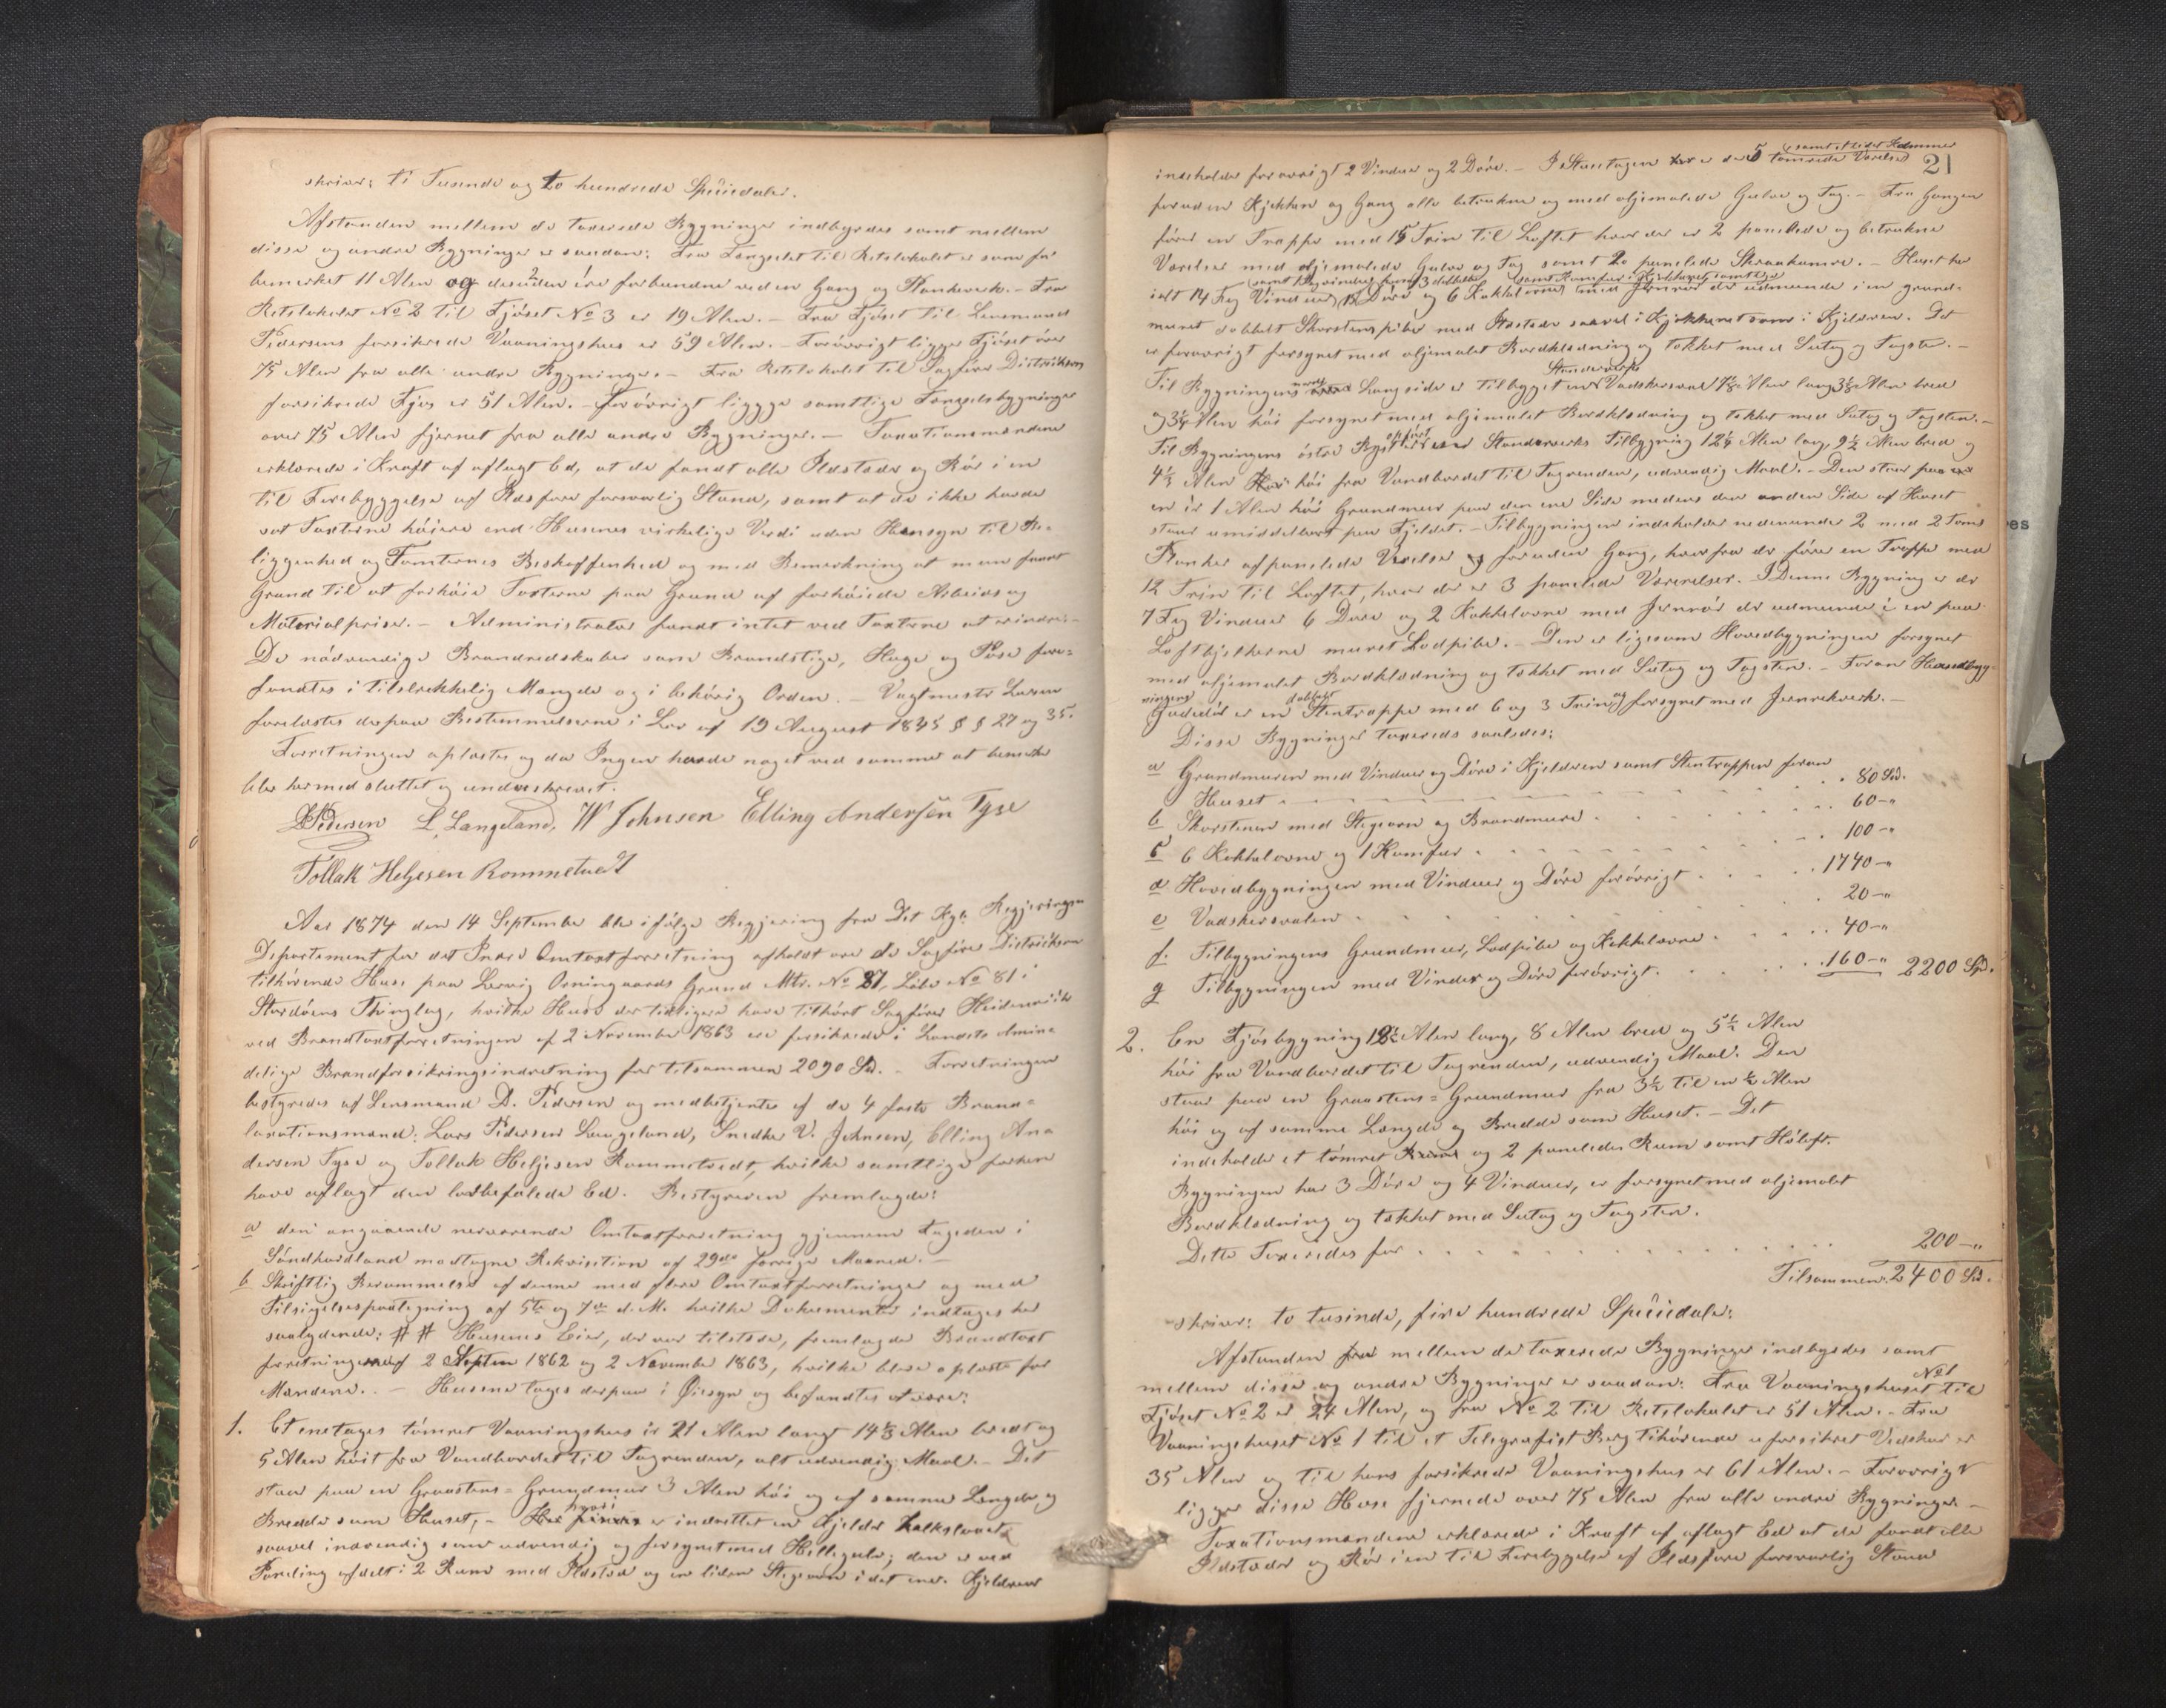 skriver: ti Tusende og to hundrede Speciedaler.
Afstanden mellem de taxerede Bygninger indbyrdes samt mellem
disse og andre Bygninger er saadan: Fra Fængslet til Retslokalet er som før
bemærket 11 Alen og desuden ere forbundne ved en Gang og Plankeværk. - Fra
Retslokalet No 2 til Fjøset No 3 er 19 Alen. - Fra Fjøset til Lensmand
Pedersens forsikrede Vaaningshus er 59 Alen. - Forøvrigt ligger Fjøset over
75 Alen fra alle andre Bygninger. - Fra Retslokalet til Sagfører Didriksens
forsikrede Fjøs er 51 Alen. - Forøvrigt ligger samtlige Fængselsbygninger
over 75 Alen fjernet fra alle andre Bygninger. - Taxationsmændene
erklærede i Kraft af aflagt Ed, at de fandt alle Ildsteder og Rør i en
til Forebyggelse af Ildsfare forsvarlig Stand, samt at de ikke havde
sat Taxterne høiere end Husenes virkelige Værdi uden Hensyn til Be-
liggenhed og Tomternes Beskaffenhed og med Bemærkning at man fandt
Grund til at forhøie Taxterne paa Grund af forhøiede Arbeids og
Materialpriser. - Administrator fandt intet ved Taxterne at erindre. -
De nødvendige Brandredskaber som Brandstige, Hage og Pøse fore-
fandtes i tilstrækkelig Mængde og i behørig Orden. - Vagtmester Larsen
forelæstes derpaa Bestemmelserne i Lov af 19 August 1845 §§ 27 og 35.
Forretningen oplæstes og da Ingen havde noget ved samme at bemærke
blev hermed sluttet og underskrevet.
D Pedersen L. Langeland, W Johnsen Elling Andersen Tyse
Tollak Helgesen Rommetvedt
Aar 1874 den 14 September blev ifølge Begjæring fra Det Kgl. Regjerings
Departement for det Indre Omtaxtforretning afholdt over de Sagfører Didriksen
tilhørende Huse paa Lervig Øvningaards Grund Mtr. No 27, Løbe No 81 i
Stordøens Thinglag, hvilke Huse der tidligere have tilhørt Sagfører Heidenreich
ved Brandtaxtforretningen af 2 November 1863 ere forsikrede i Landets Almin-
delige Brandforsikringsindretning for tilsammen 2090 Spd. - Forretningen
bestyredes af Lensmand D. Pedersen og medbetjentes af de 4 faste Brand-
taxationsmænd: Lars Pedersen Langeland, Snedker V. Johnsen, Elling An-
dersen Tyse og Tollak Heljesen Rommetvedt, hvilke samtlige forhen
have aflagt den lovbefalede Ed. Bestyreren fremlagde:
a den angaaende nærværende Omtaxtforretning gjennem Fogeden i
Søndhordland modtagne Rekvisition af 29de forrige Maaned. -
b Skriftlig Berammelse af denne med flere Omtaxtforretninger og med
Tilsigelsespaategning af 5te og 7de d. M. hvilke Dokumenter indtages her
saalydende: # # Husenes Eier, der var tilstede, fremlagde Brandtaxt
forretningen af 2 Septem 1862 og 2 November 1863, hvilke bleve oplæste for
Mændene. - Husene toges derpaa i Øiesyn og befandtes at være:
1. Et enetages tømret Vaaningshus er 21 Alen langt 14 1/3 Alen bredt og
5 Alen høit fra Vandbordet til Tagrenden, alt udvendig Maal. - Det
staar paa en Graastens-Grundmur 3 Alen høi og af samme Længde og
hvori
Bredde som Huset, - er indrettet en Kjelder kalkslaaet
saavel indvendig som udvendig og forsynet med Hillegulv; den er ved
Paneling afdelt i 2 Rum med Ildsted og en liden Stegeovn i det ene. Kjelderen
21
samt et lidet Kammer
indeholder forøvrigt 2 Vinduer og 2 Døre. - I Stuetagen er der 5 tømrede Værelser
foruden Kjøkken og Gang alle betrukne og med oljemalede Gulve og Tag. - Fra Gangen
fører en Trappe med 15 Trin til Loftet hvor der er 2 panelede og betrukne
Værelser med oljemalede Gulve og Tag samt 2 panelede Skraakamre. - Huset har
samt Komfur i Kjøkkenet samtlige
ialt 14 Fag Vinduer, Døre og 6 Kakkelovne med Jernrør der udmunde i en grund-
muret dobbelt Skorstenspibe med Ildsteder saavel i Kjøkkenet som i Kjelderen. Det
er forøvrigt forsynet med oljemalet Bordklædning og tækket med Sutag og Tagsten. -
Standerværks
Til Bygningens nordre Langside er tilbygget en Vadskersval 7 1/8 Alen lang 3 1/8 Alen bred
og 3 1/4 Alen høi forsynet med oljemalet Bordklædning og tækket med Sutag og Tagsten. -
Til Bygningens østre er opført en Standerværks Tilbygning 12 1/4 Alen lang, 9 1/2 Alen bred og
4 1/3 Alen høi fra Vandbordet til Tagrenden, udvendig Maal. - Den staar paa
en 1 Alen høi Grundmur paa den ene Side medens den anden Side af Huset
staar umiddelbart paa Fjeldet. - Tilbygningen indeholder nedenunder 2 med 2 Toms
Planker afpanelede Værelser foruden Gang, hvorfra der fører en Trappe med
12 Trin til Loftet, hvor der er 3 panelede Værelser. I Denne Bygning er der
7 Fag Vinduer 6 Døre og 2 Kakkelovne med Jernrør der udmunde i en paa
Loftbjelkerne muret Lodpibe. - Den er ligesom Hovedbygningen forsynet
med oljemalet Bordklædning og tækket med Sutag og Tagsten. - Foran Hovedbyg-
ningens dobbelt
Gadedør er en Stentrappe med 6 og 3 Trin og forsynet med Jernrekværk. -
Disse Bygninger taxeredes saaledes:
a Grundmuren med Vinduer og Døre i Kjelderen samt Stentrappen foran
Huset . . . 80 Spd.
b Skorstenen med Stegeovn og Brandmure . . . 60 - "
c 6 Kakkelovne og 1 Komfur . . . 100 - "
d Hovedbygningen med Vinduer og Døre forøvrigt . . . 1740 - "
e Vadskersvalen . . . 20 - "
f. Tilbygningens Grundmur, Lodpibe og Kakkelovne . . . 40 - "
g Tilbygningen med Vinduer og Døre forøvrigt . . . 160 - " 2200 Spd.
2. En Fjøsbygning 12 1/2 Alen lang, 8 Alen bred og 5 1/2 Alen
høi fra Vandbordet til Tagrenden, udvendig Maal. Den
staar paa en Graastens-Grundmur fra 3 1/2 til en 1/2 Alen
høi og af samme Længde og Bredde som Huset. - Det
indeholder et tømret Rum og 2 panelede Rum samt Høloft.
Bygningen har 3 Døre og 4 Vinduer, er forsynet med oljemalet
Bordklædning og tækket med Sutag og Tagsten.
Dette Taxeredes for . . . 200 - "
Tilsammen: 2400 Spd.
skriver: to tusinde, fire hundrede Speciedaler:
Afstanden mellem de taxerede Bygninger indbyrdes samt
mellem disse og andre Bygninger er saadan: Fra Vaaningshuset No 1 til
Fjøset No 2 er 24 Alen, og fra No 2 til Retslokalet er 51 Alen. - Fra
Vaaningshuset No 1 til et Telegrafist Berg tilhørende uforsikret Vedskur er
35 Alen og til hans forsikrede Vaaningshus er 61 Alen. - Forøvrigt
ligger disse Huse fjernede over 75 Alen fra alle andre Bygninger. -
Taxationsmændene erklærede i Kraft af aflagt Ed at de fandt alle
Ildsteder og Rør i en til Forebyggelse af Ildsfare forsvarlig Stand